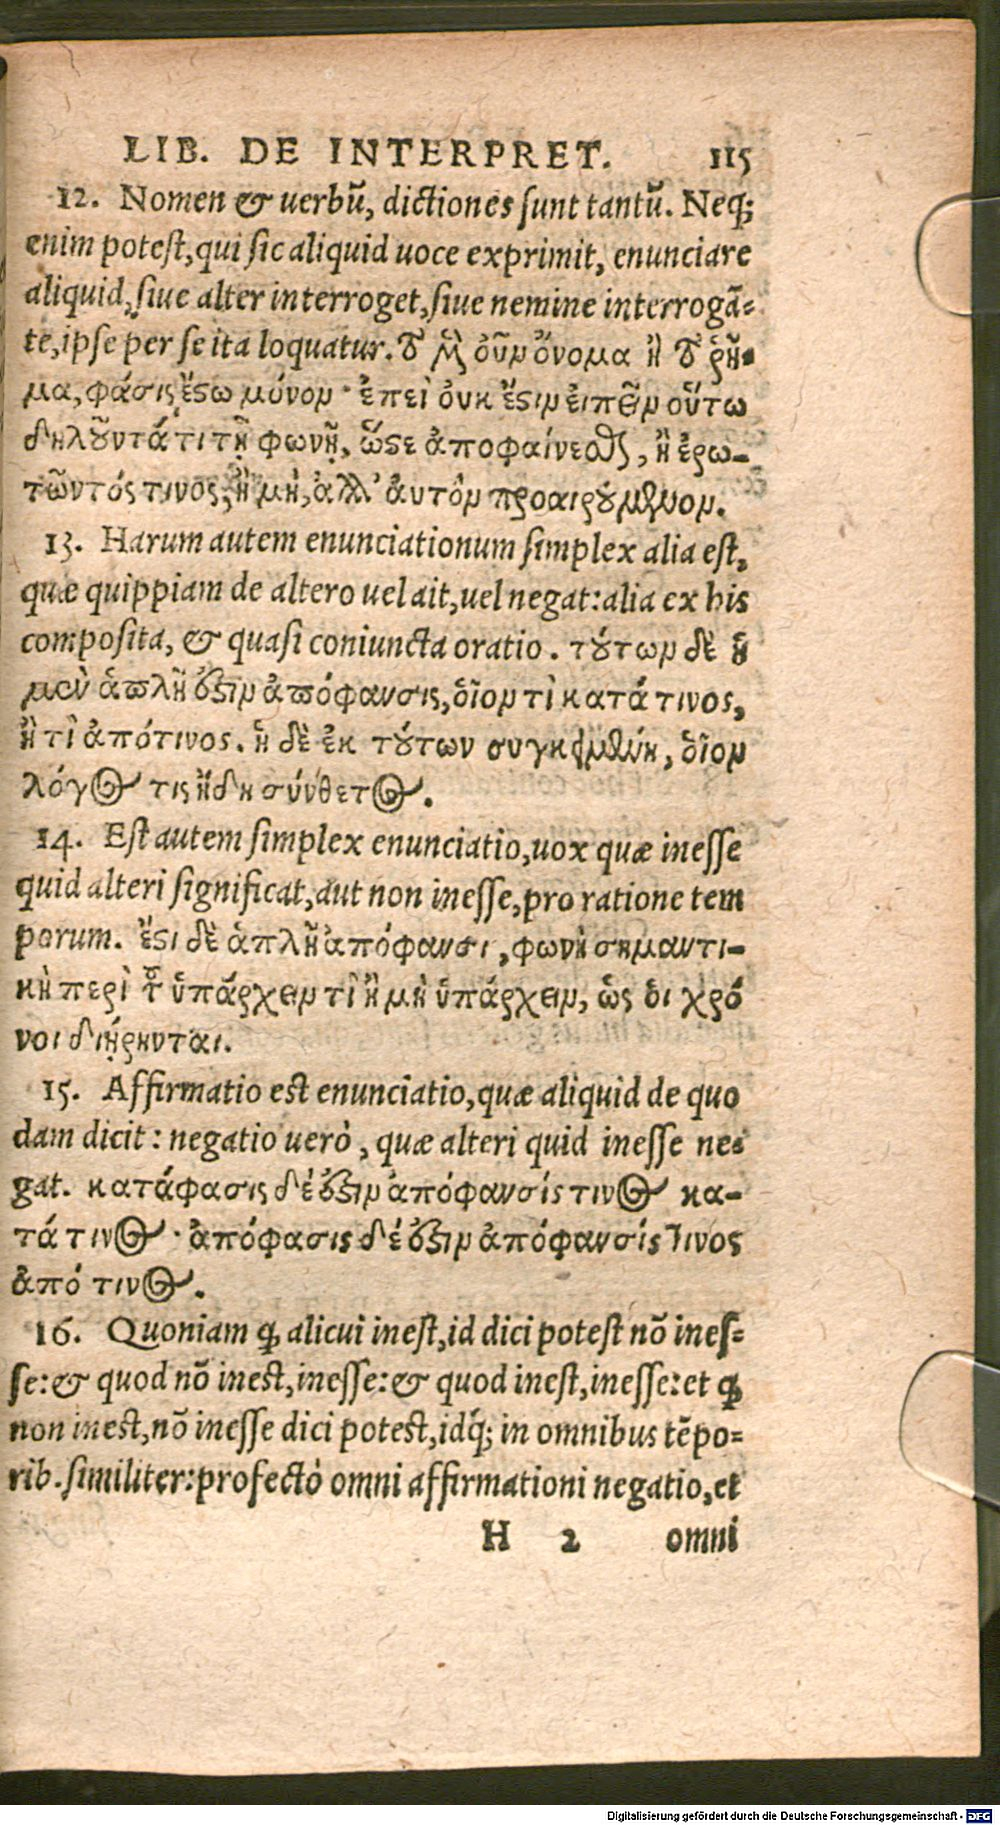 LIB. DE INTERPRET. 115
12. Nomen & uerbũ, dictiones sunt tantũ. Neq;
enim potest, qui sic aliquid uoce exprimit, enunciare
aliquid, siue alter interroget, siue nemine interrogã=
te, ipse per se ita loquatur. τὸ μὲν οὖν ὄνομα ἢ τὸ ῥῆ-
μα, φάσις ἔστω μόνον· ἐπεὶ ὀυκ ἔστιν ἐιπεῖν οὕτω
δηλοῦντά τι τῇ φωνῇ, ὥστε ἀποφαίνεσθαι, ἢ ἐρω-
τῶντός τινος, ἢ μὴ, ἀλλ' ἀυτὸν προαιρούμενον.
13. Harum autem enunciationum simplex alia est,
quæ quippiam de altero uel ait, uel negat: alia ex his
composita, & quasi coniuncta oratio. τούτων δὲ ἡ
μὲν ἁπλῆ ἐστιν ἀπόφανσις, ὁῖον τὶ κατά τινος,
ἢ τὶ ἀπό τινος. ἡ δὲ ἐκ τούτων συγκειμένη, ὁῖον
λόγος τις ἤδη σύνθετος.
14. Est autem simplex enunciatio, uox quæ inesse
quid alteri significat, aut non inesse, pro ratione tem
porum. ἔστι δὲ ἁπλῆ ἀπόφανσι, φωνὴ σημαντι-
κὴ περὶ τοῦ ὑπάρχειν τὶ ἢ μὴ ὑπάρχειν, ὡς ὁι χρό
νοι διῄρηνται.
15. Affirmatio est enunciatio, quæ aliquid de quo
dam dicit: negatio uerò, quæ alteri quid inesse ne=
gat. κατάφασις δέ ἐστιν ἀπόφανσίς τινος κα-
τά τινος· ἀπόφασις δέ ἐστιν ἀπόφανσίς τινος
ἀπό τινος.
16. Quoniam ꝙ alicui inest, id dici potest nõ ines=
se: & quod nõ inest, inesse: & quod inest, inesse: et ꝙ
non inest, nõ inesse dici potest, idq́; in omnibus tẽpo=
rib. similiter: profectò omni affirmationi negatio, et
H 2 omni
Digitalisierung gefördert durch die Deutsche Forschungsgemeinschaft - DFG